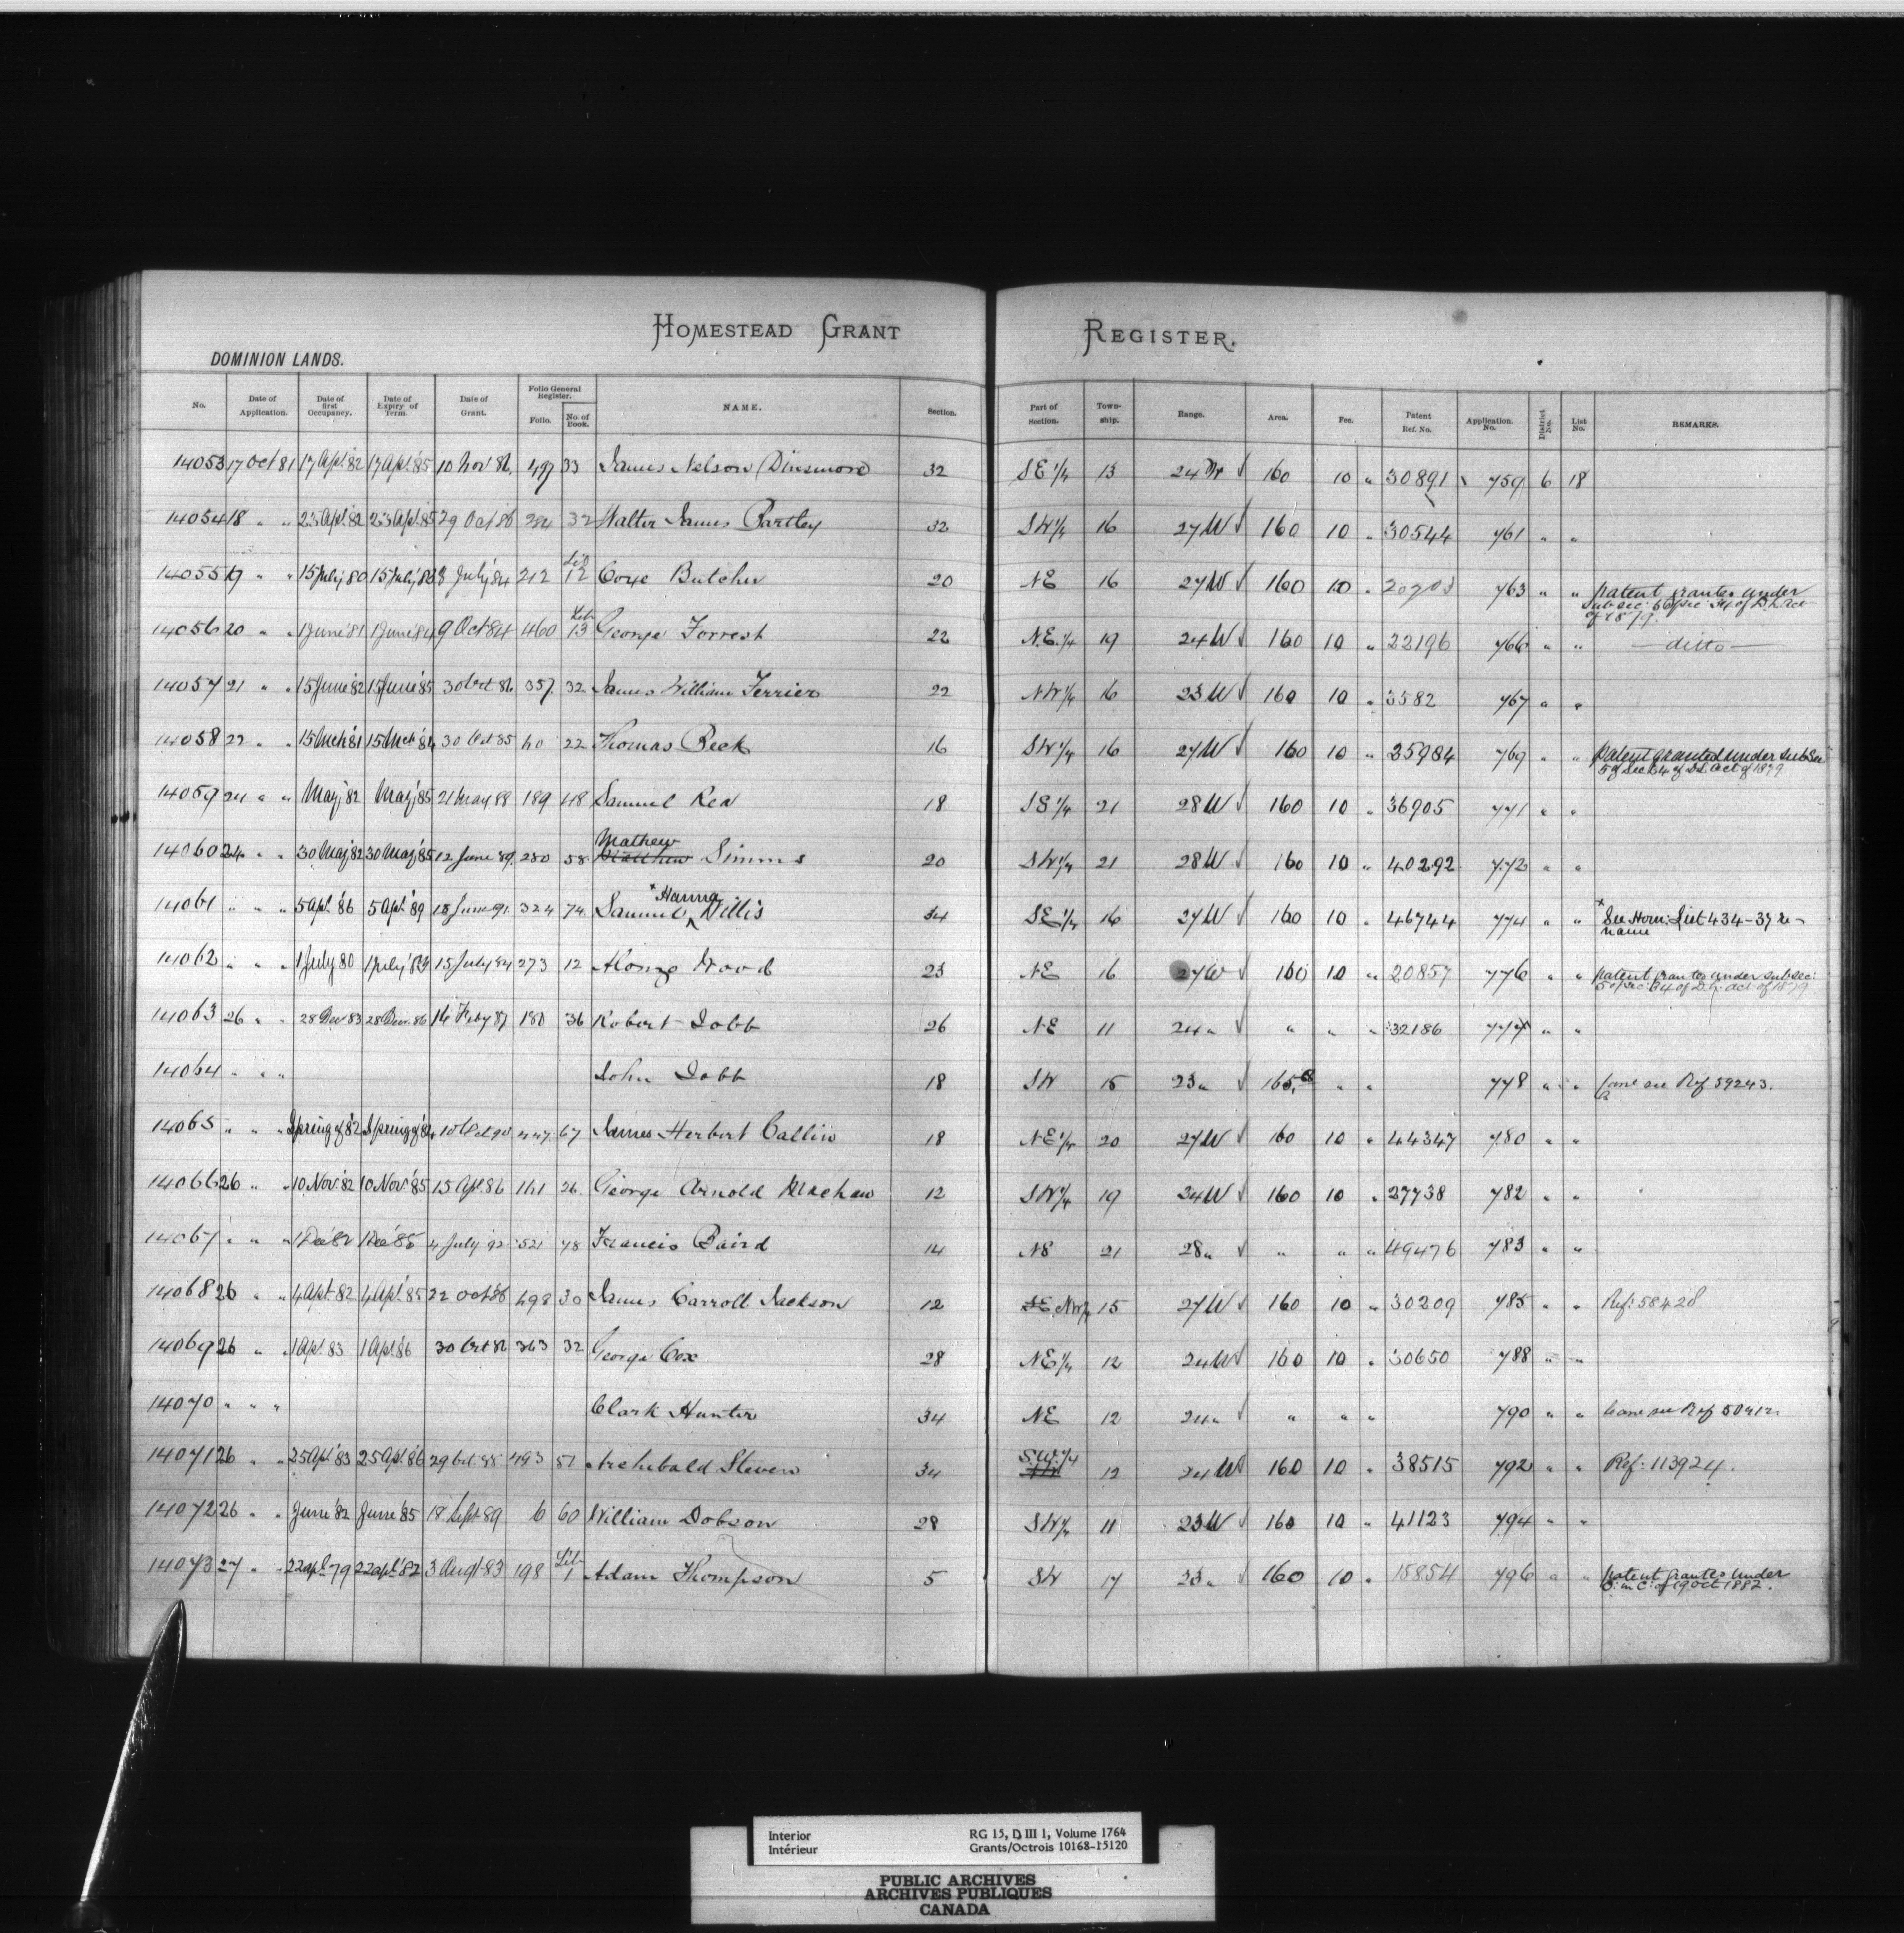 HOMESTEAD GRANT REGISTER.
DOMINION LANDS.
No. Date of Application. Date of first Occupancy. Date of Expiry of Term. Date of Grant. Folio General Register. Folio. No. of Book. NAME. Section. Part of Section. Town-ship. Range. Area. Fee. Patent Ref. No. Application No. District No. List No. REMARKS.
14053 17 Oct 81 17 Apl. 82 17 Apl. 85 10 Nov 86 497 33 James Nelson Dinsmore 32 SE 1/4 13 24 W √ 160 10 " 30891 759 6 18
14054 18 " " 23 Apl. 82 23 Apl. 85 29 Oct 86 284 32 Walter James Bartley 32 SW 1/4 16 27 W √ 160 10 " 30544 761 " "
14055 19 " " 15 July 80 15 July 83 8 July 84 212 Lib 12 Coxe Butcher 20 NE 16 27 W √ 160 10 " 763 " " patent granted under sub sec: of sec 34 of D.L. Act of 1879.
14056 20 " " 1 June '81 1 June '84 9 Oct 84 460 Lib 13 George Forrest 22 N.E. 1/4 19 24 W √ 160 10 " 22196 766 " " — ditto —
14057 21 " " 15 June '82 15 June '85 30 Oct 86 357 32 James William Ferrier 22 NW 1/4 16 23 W √ 160 10 " 3582 767 " "
14058 22 " " 15 Mch '81 15 Mch '84 30 Oct 85 40 22 Thomas Beek 16 SW 1/4 16 27 W √ 160 10 " 25984 769 " " Patent granted under sub Sec 5 of Sec 34 of D.L. Act of 1879
14059 24 " " May '82 May '85 21 May 88 189 48 Samuel Rea 18 SE 1/4 21 28 W √ 160 10 " 36905 771 " "
14060 24 " " 30 May '82 30 May '85 12 June 89 280 58 Mathew Matthew Simms 20 SW 1/4 21 28 W √ 160 10 " 40292 772 " "
14061 " " " 5 Apl '86 5 Apl '89 18 June 91 324 74 Samuel × Hanna Willis 34 SE 1/4 16 27 W √ 160 10 " 46744 774 " " × See Hom: List 434-37 re name
14062 " " " 1 July 80 1 July '83 15 July 84 273 12 Alonzo Wood 23 NE 16 27 W √ 160 10 " 20857 776 " " patent granted under sub sec: 5 of Sec: 34 of D.L. Act of 1879
14063 26 " " 28 Dec 83 28 Dec. 86 14 Feby 87 180 36 Robert Jobb 26 NE 11 24 " √ " " " 32186 777 " "
14064 " " " John Jobb 18 SW 15 23 " √ " " 778 " " Canc see Ref 59243.
14065 " " " Spring of '82 Spring of '85 447 67 James Herbert Callin 18 NE 1/4 20 27 W √ 160 10 " 44347 780 " "
14066 26 " " 10 Nov. '82 10 Nov. '85 15 Apl 86 161 26 George Arnold 12 SW 1/4 19 24 W √ 160 10 " 27738 782 " "
14067 " " " 1 Dec '82 1 Dec '85 4 July 92 521 78 Francis Baird 14 NE 21 28 " √ " " " 49476 783 " "
14068 26 " " 4 Apl. 82 4 Apl. 85 22 Oct 86 498 30 James Carroll Jackson 12 SE NW 1/4 15 27 W √ 160 10 " 30209 785 " " Ref: 58428
14069 26 " " 1 Apl. 83 1 Apl. 86 30 Oct 86 363 32 George Cox 28 NE 1/4 12 24 W √ 160 10 " 30650 788 " "
14070 " " " Clark Hunter 34 NE 12 24 " √ " " " 790 " " Canc see Ref
14071 26 " " 25 Apl. 83 25 Apl. '86 29 Oct 88 493 51 Archibald Steven 34 S.W. 1/4 12 24 W √ 160 10 " 38515 792 " " Ref: 113924.
14072 26 " " June '82 June '85 18 Sept 89 6 60 William Dobson 28 SW 1/4 11 23 W √ 160 10 " 41123 794 " "
14073 27 " " 22 Apl 79 22 Apl. '82 3 Augt 83 198 Lib 1 Adam Thompson 5 SW 17 23 " √ 160 10 " 15854 796 " " patent granted under O: in C: of 19 Oct 1882.
Interior RG 15, D III 1, Volume 1764
Intérieur Grants/Octrois 10168-15120
PUBLIC ARCHIVES
ARCHIVES PUBLIQUES
CANADA